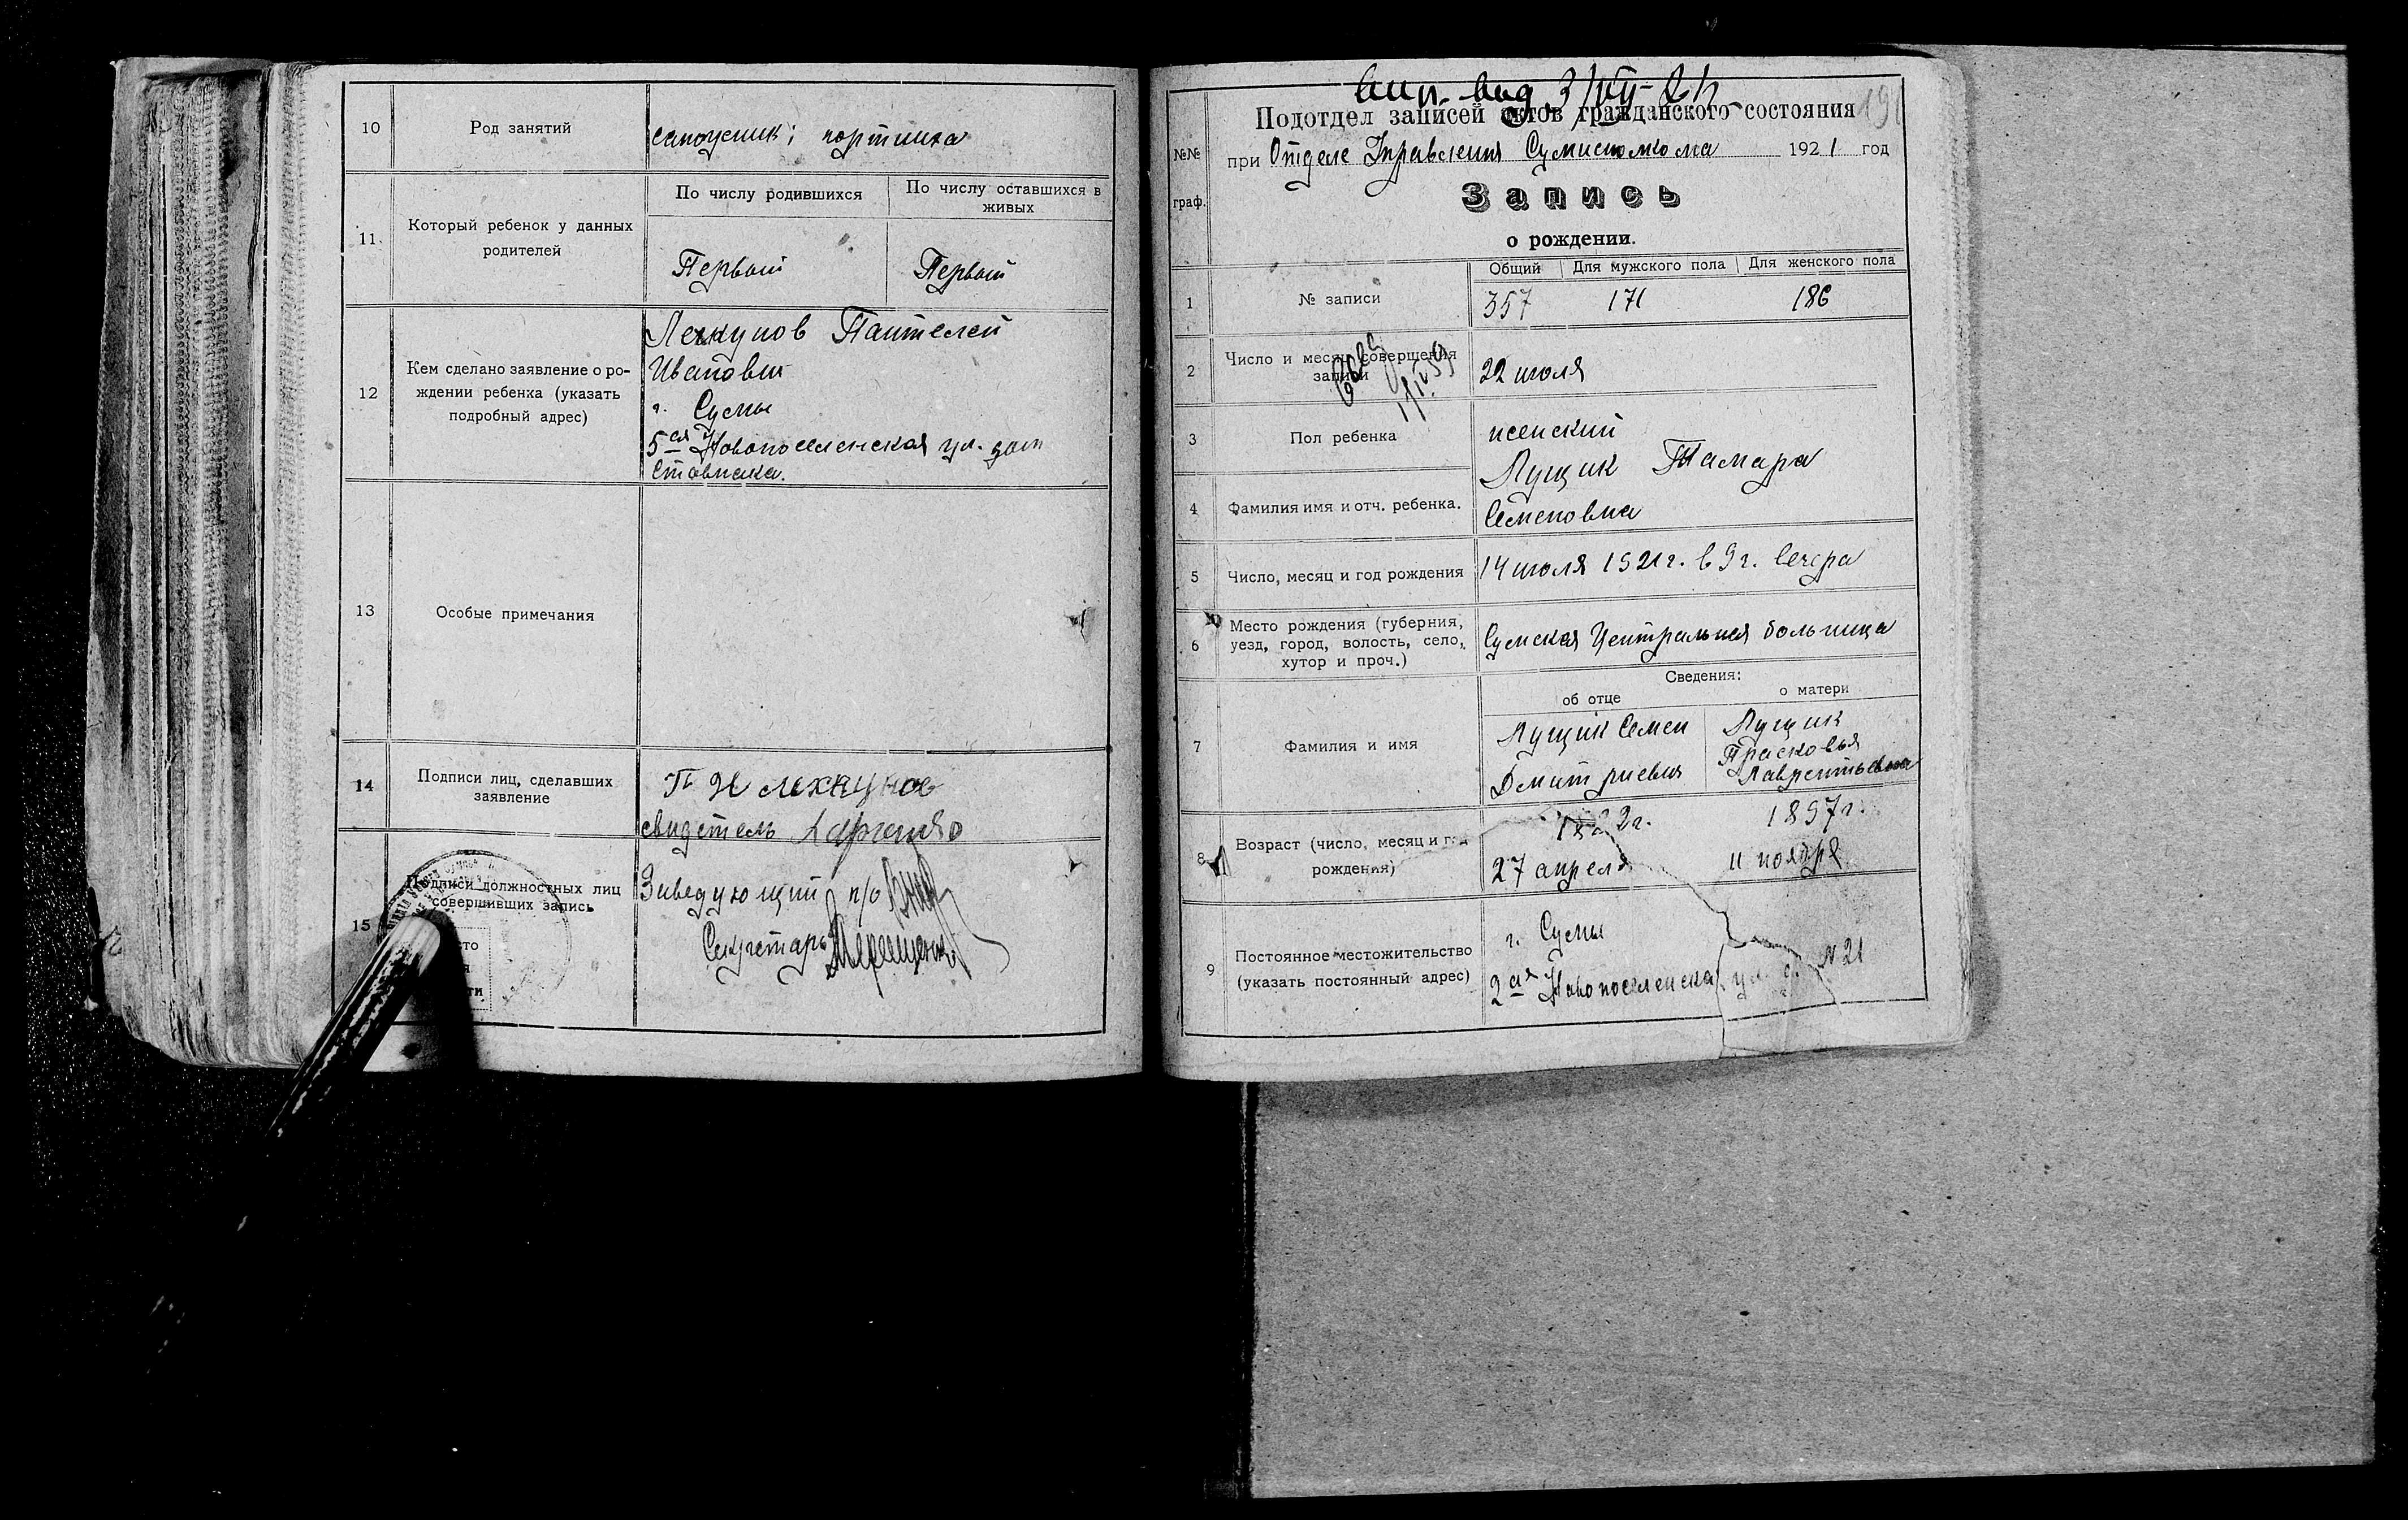 10
Род занятий
сапожник; портниха
11.
Который ребенок у данных
родителей
По числу родившихся
По числу оставшихся в
живых
Первый
Первый
12
Кем сделано заявление о ро-
ждении ребенка (указать
подробный адрес)
Пантелей
Иванович
г. Сумы
5ая Новопоселенская ул. дом
13
Особые примечания
14
Подписи лиц, сделавших
заявление
свидетель
15
Подписи должностных лиц
совершивших запись
Заведующий п/о
Секретарь
Подотдел записей актов гражданского состояния
191
№№
граф.
при Отделе Управления Сумисполкома 1921 год
Запись
о рождении.
Общий
Для мужского пола
Для женского пола
1
№ записи
357
171
186
2
Число и месяц совершения
записи
22 июля
3
Пол ребенка
женский
4
Фамилия имя и отч. ребенка.
Лущик Тамара
Семеновна
5
Число, месяц и год рождения
14 июля 1921 г. в 9 г. вечера
6
Место рождения (губерния,
уезд, город, волость, село,
хутор и проч.)
Сумская Центральная больница
Сведения:
об отце
о матери
7
Фамилия и имя
Лущик Семен
Дмитриевич
Лущик
Прасковья
Лаврентьевна
8
Возраст (число, месяц и год
рождения)
27 апреля
1897 г.
11 ноября
9
Постоянное местожительство
(указать постоянный адрес)
г. Сумы
2ая Новопоселенская ул. д. №21